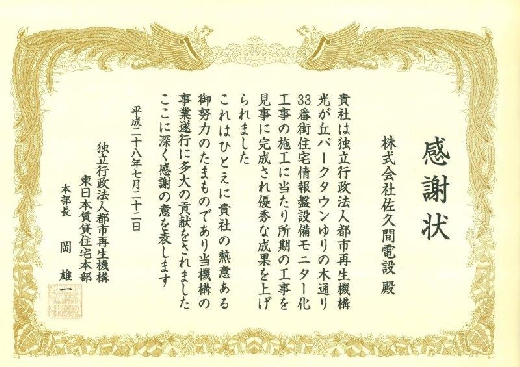 感謝状
株式会社佐久間電設 殿
貴社は独立行政法人都市再生機構
光が丘パークタウンゆりの木通り
33番街住宅情報盤設備モニター化
工事の施工に当たり所期の工事を
見事に完成され優秀な成果を上げ
られました
これはひとえに貴社の熱意ある
御努力のたまものであり当機構の
事業遂行に多大の貢献をされました
ここに深く感謝の意を表します
平成二十八年七月二十二日
独立行政法人都市再生機構
東日本賃貸住宅本部
本部長 岡 雄一